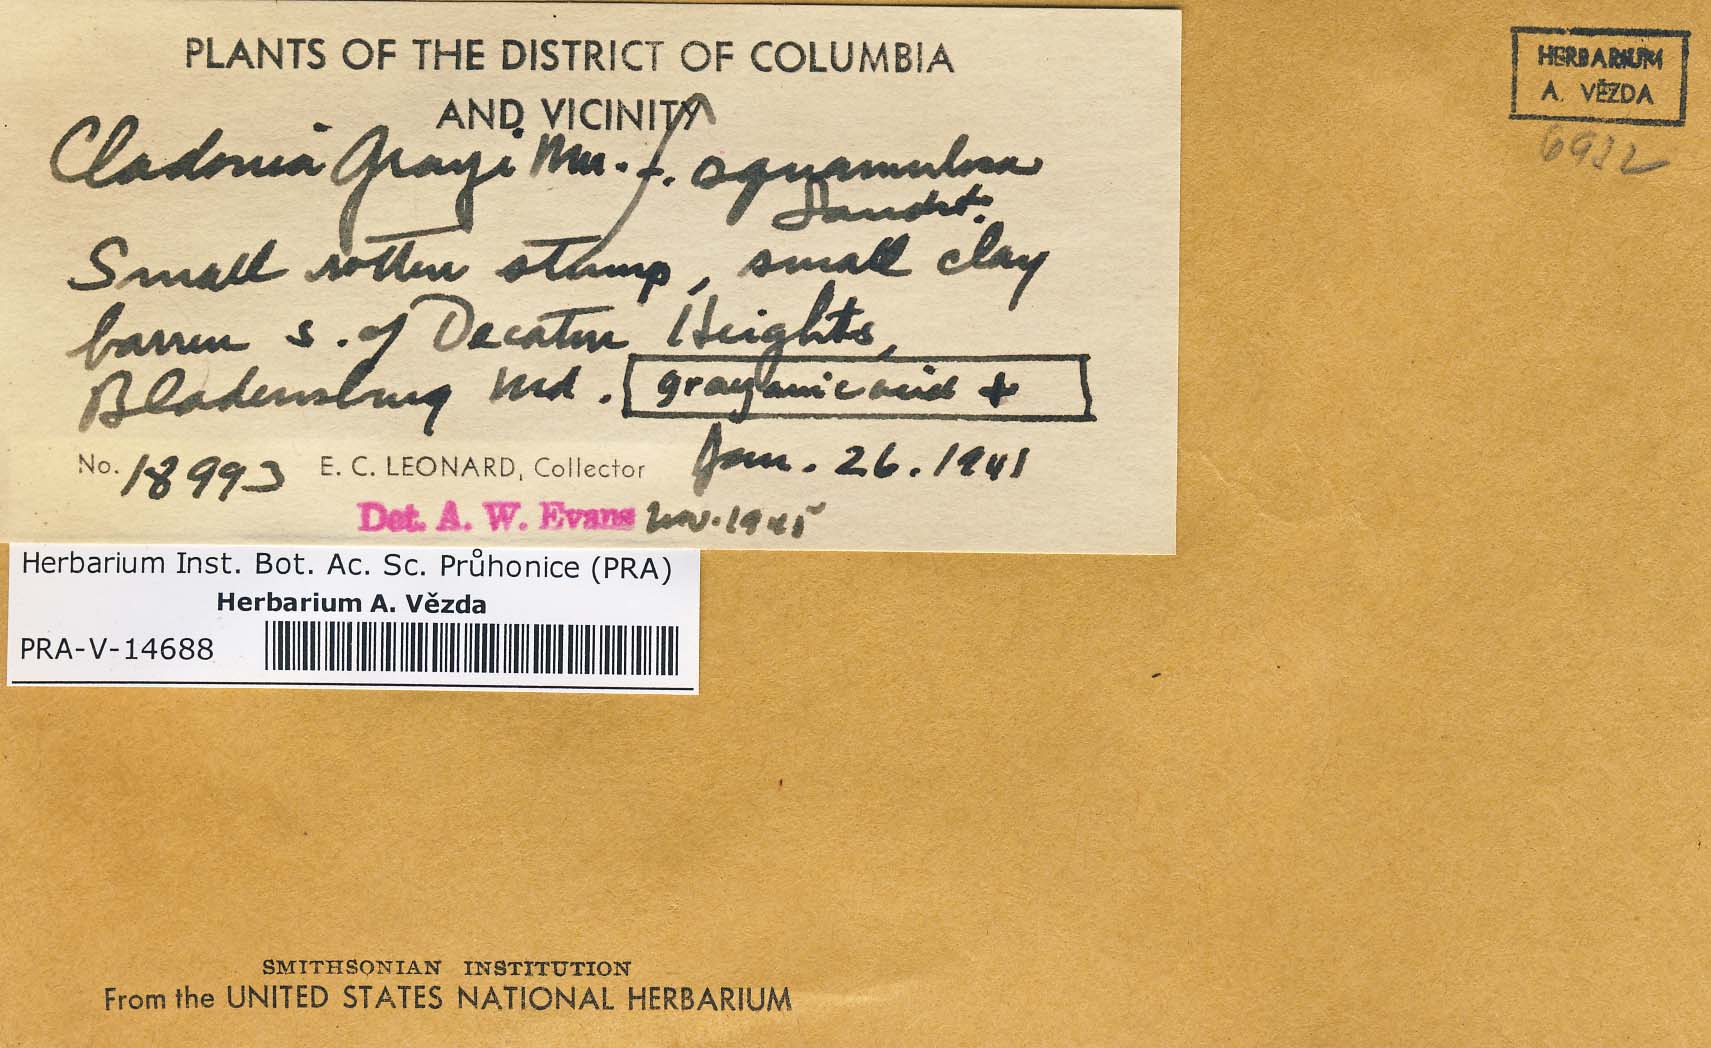 PLANTS OF THE DISTRICT OF COLUMBIA
AND VICINITY
HERBARIUM
A. VĚZDA
6932
Cladonia Grayi Mer. f. squamulosa
Sandst.
Small rotten stump, small clay
barren s. of Decatur Heights,
Bladensburg Md. grayanic acid +
No. 18993 E. C. LEONARD, Collector Jan. 26. 1941
Det. A. W. Evans Nov. 1945
Herbarium Inst. Bot. Ac. Sc. Průhonice (PRA)
Herbarium A. Vězda
PRA-V-14688
SMITHSONIAN INSTITUTION
From the UNITED STATES NATIONAL HERBARIUM